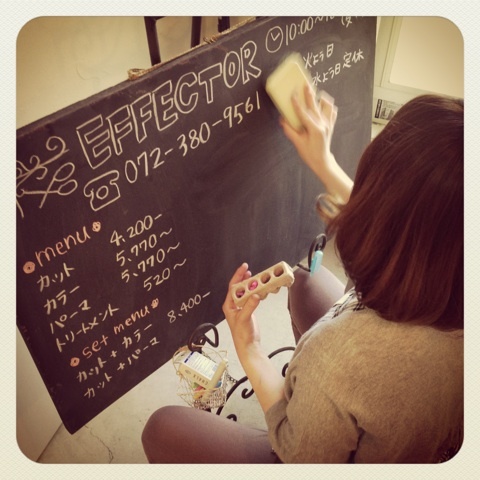 EFFECTOR
10:00~
072-380-9561
火よう日
水よう日定休
menu
カット 4.200-
カラー 5.770~
パーマ 5.770~
トリートメント 520~
set menu
カット+カラー 8.400-
カット+パーマ